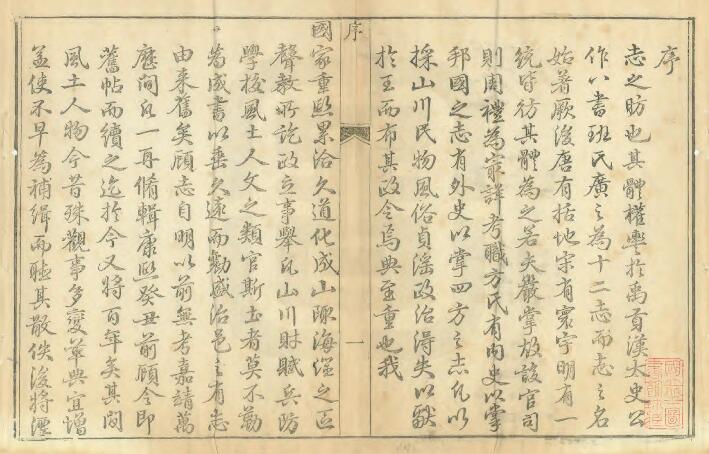 序
志之昉也其體權輿於禹貢漢太史公
作八書班氏廣之為十二志而志之名
始著厥後唐有括地宋有寰宇明有一
統皆仿其體為之若夫嚴掌故設官司
則周禮為最詳考職方氏有內史以掌
邦國之志有外史以掌四方之志凡以
採山川民物風俗貞淫政治得失以獻
於王而布其政令焉典至重也我
序
一
國家重熙累洽久道化成山陬海澨之區
聲教所訖政立事舉凡山川財賦兵防
學校風土人文之類官斯土者莫不勒
為成書以垂久遠而勷盛治邑之有志
由來舊矣顧志自明以前無考嘉靖萬
歷間凡一再脩輯康熙癸丑前顧令即
舊帖而續之迄於今又將百年矣其間
風土人物今昔殊觀事多變革典宜增
益使不早為補緝而聽其散佚後將湮